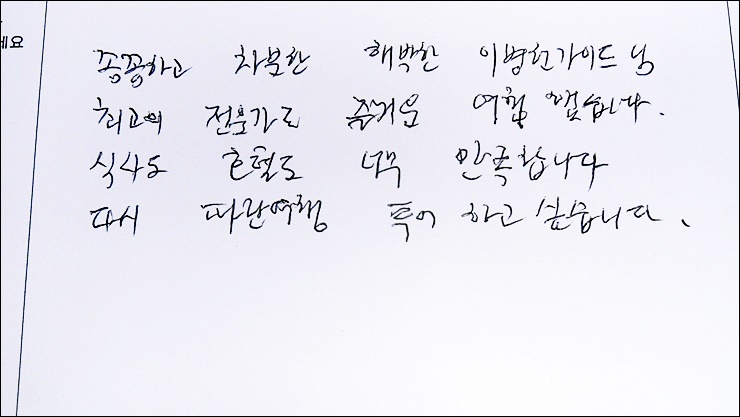 세요
꽁꽁하고 차분한 해박한 이병헌가이드님
최고의 전문가로 즐거운 여행 했습니다.
식사도 호텔도 너무 만족합니다
다시 파란여행 투어 하고 싶습니다.